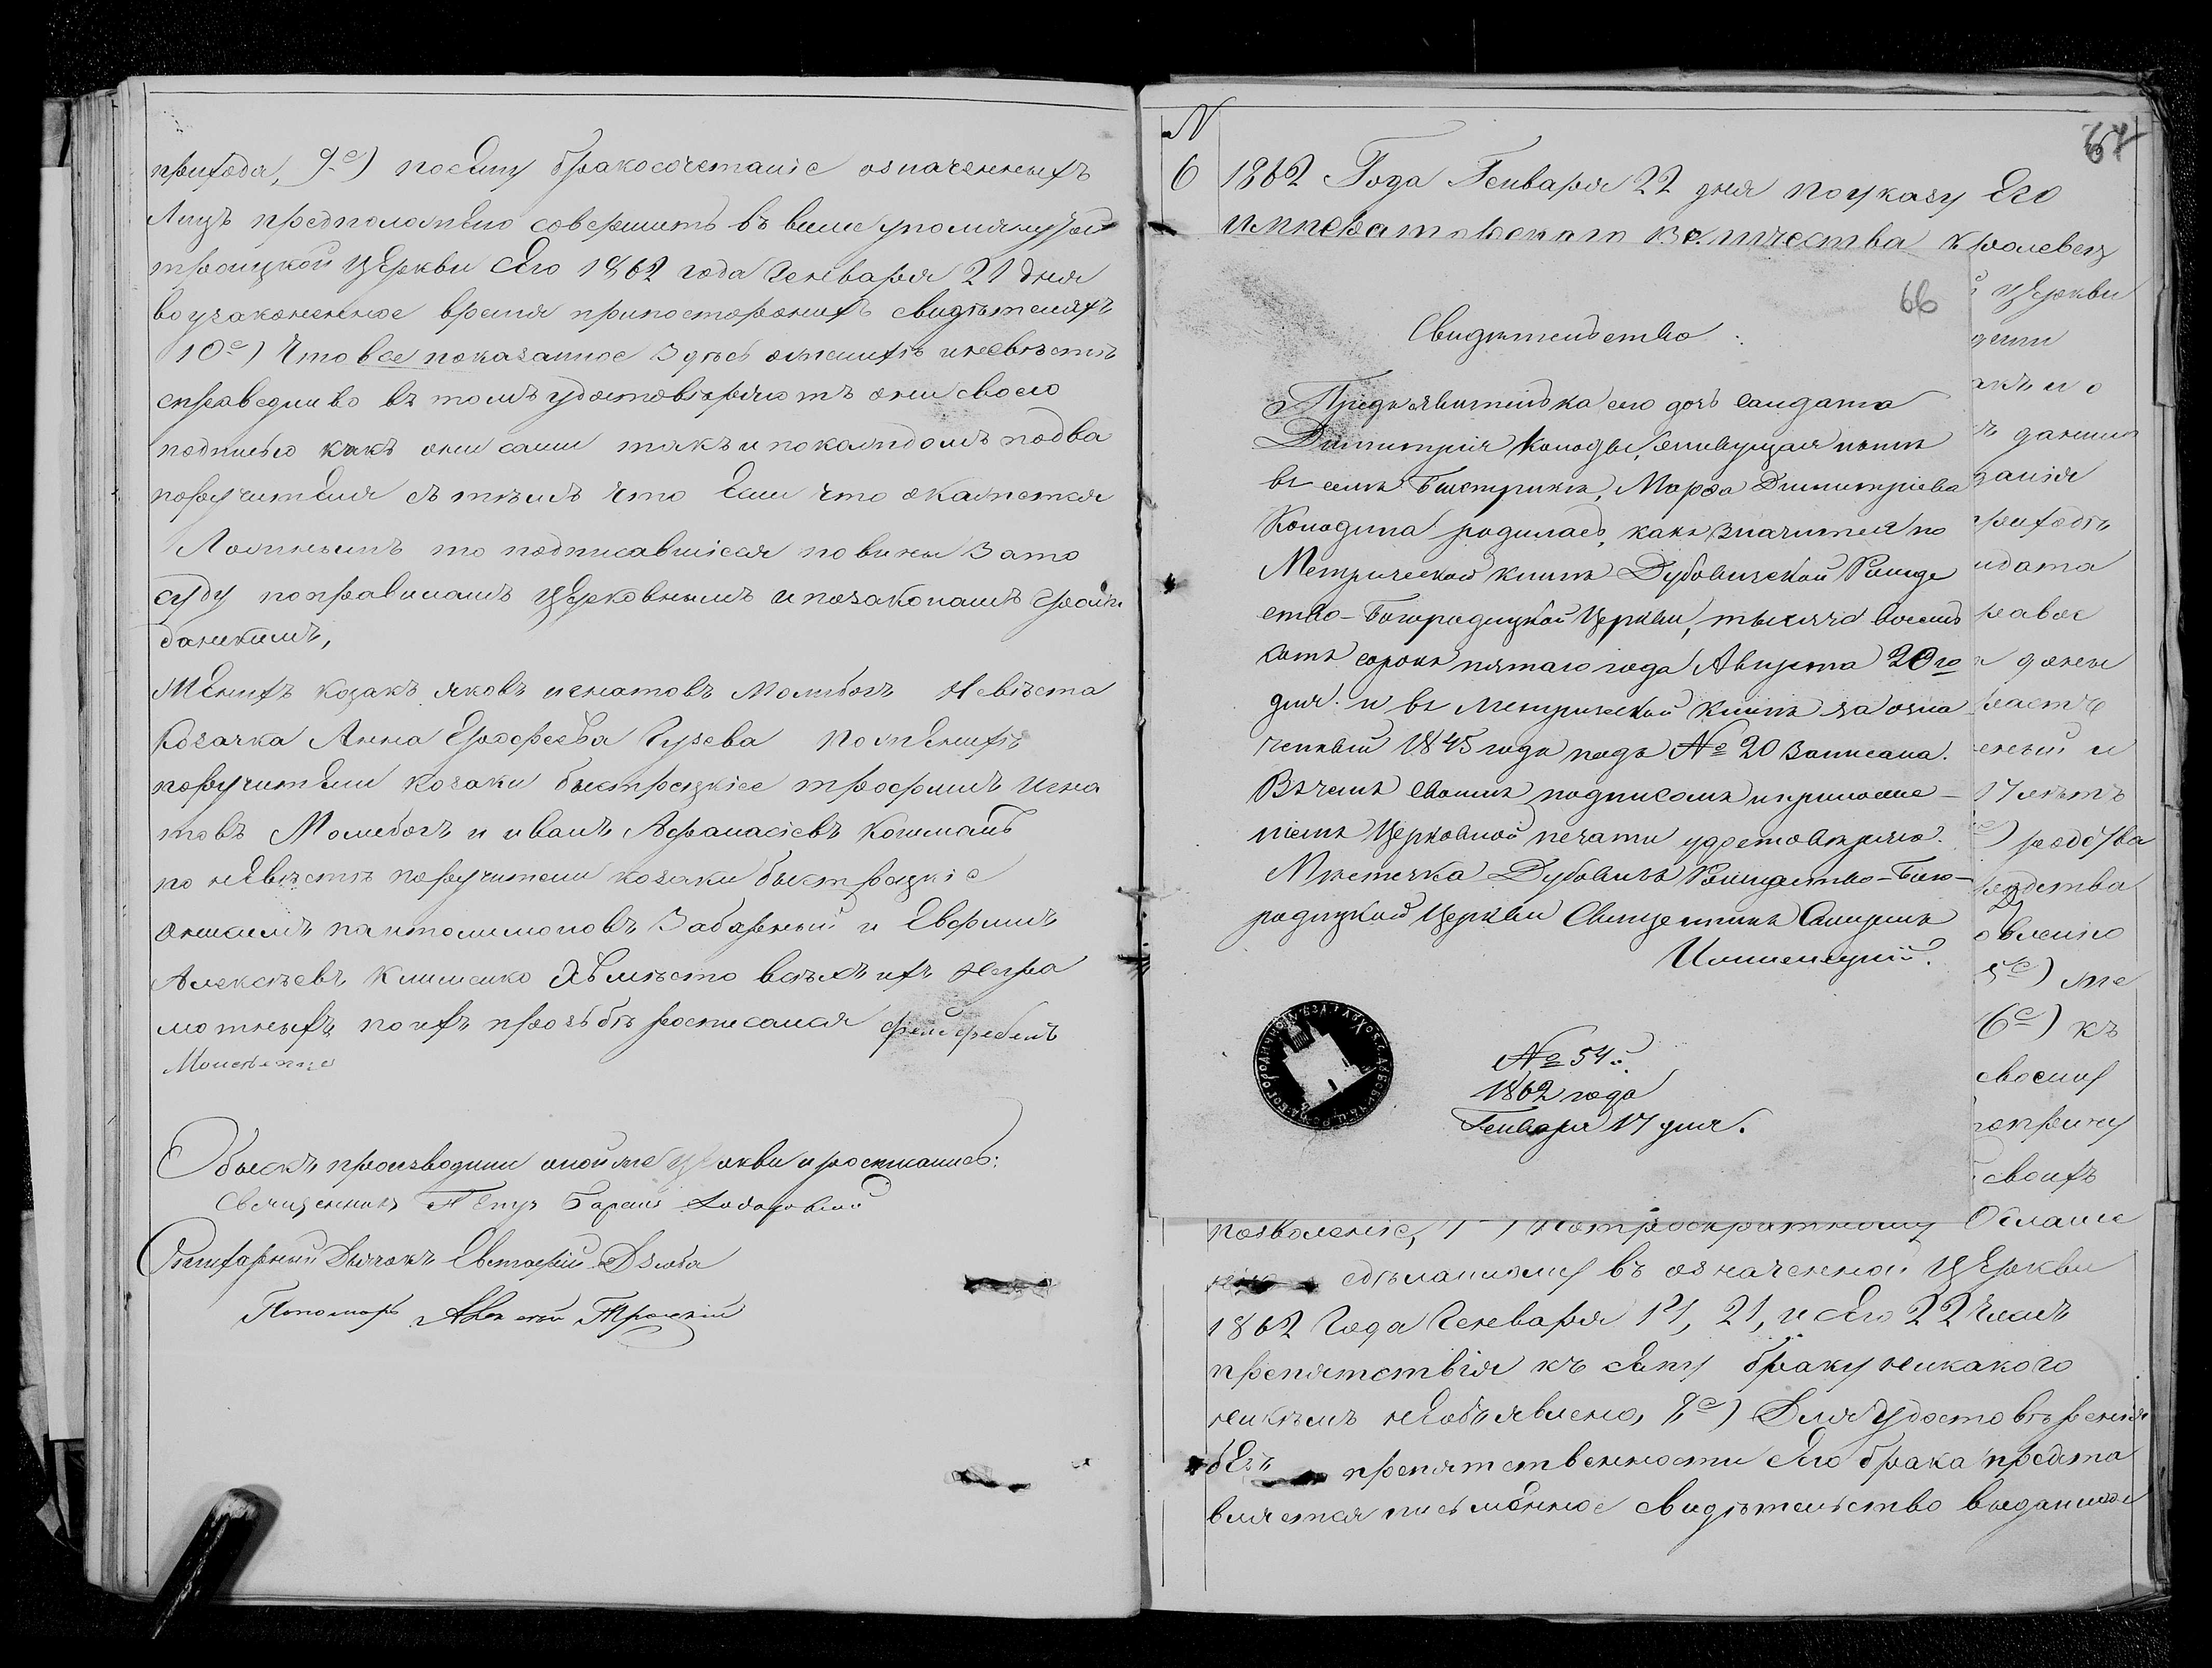 прихода, 9е) посему бракосочетаніе означенныхъ
Лицъ предположено совершить въ выше упомянутой
троицкой Церкви сего 1862 года Генваря 21 дня
во узаконенное время припостороннихъ свидѣтеляхъ
10е) Что все показанное здѣсь оженихѣ и невѣстѣ
справедливо въ томъ удостовѣряютъ они своею
подписью какъ они сами такъ и покаждомъ подва
поручителя съ тѣмъ что Если что окажется
Ложнымъ то подписавшіеся повинны Зато
суду поправиламъ Церковнымъ и позаконамъ Граж
данскимъ,
Женихъ козакъ яковъ игнатовъ Молибогъ Невѣста
Козачка Анна Ерофеева Гузева По Женихѣ
поручители козаки быстрицкіе трофимъ Игна
товъ Молибогъ и иванъ Афанасіевъ
по невѣстѣ поручители козаки быстрицкіе
онисимъ пантелимоновъ Забарный и Евфимъ
Алексѣевъ Клименко А вмѣсто всѣхъ ихъ негра
мотныхъ по ихъ прозьбѣ росписался фельдфебель
Обыскъ производили оной же церкви и росписались:
Священникъ Петръ
Дьячокъ Евстафій Дзюба
Пономарь Алексѣй Троскій
N
67
6 1862 Года Генваря 22 дня поуказу Его
императорскаго величества кролевец
66
Свидѣтельство
Предъявительница сего дочь солдата
Димитрія Колоды, живущая нынѣ
въ селѣ Быстрикѣ, Марфа Димитріева
Колодина родилась, какъ значится по
Метрической книгѣ Дубовичской Рожде
ство-Богородицкой Церкви, тысяча восемь
сотъ сорокъ пятаго года Августа 20го
дня. и въ Метрической Книгѣ за озна
ченный 1845 годъ подъ № 20 записана.
Въ чемъ своимъ подписомъ и приложе-
ніемъ Церковной печати удостовѣряю.
Мѣстечка Дубовичъ Рождество-Бого-
родицкой Церкви Священникъ
№ 54й
1862 года
Генваря 17 дня.
Церкви
акъ и о
данной
прихода
лдата
раста
17 лѣтъ
) родства
5е) же
6е) къ
своему
своихъ
позволеніе, 7е) потроекратному Оглаше
сдѣланному въ означенной Церкви
1862 Года Генваря 21, и сего 22 Числъ
препятствія къ сему браку никакого
никѣмъ необъявлено, 8е) Для удостовѣренія
безъ препятственности сего брака предста
вляется письменное свидѣтельство выданное